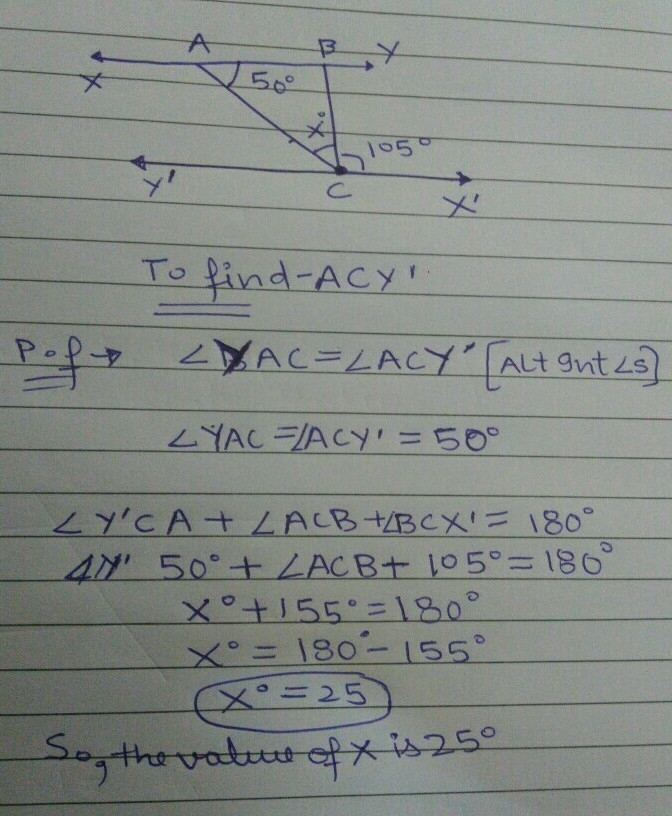 A B Y
X 50°
x° 105°
Y' C X'
To find-ACY'
P.o.f→ ∠YAC=∠ACY' [Alt Int ∠s]
∠YAC=∠ACY' = 50°
∠Y'CA + ∠ACB +∠BCX' = 180°
50° + ∠ACB + 105° = 180°
x° + 155° = 180°
x° = 180° - 155°
x° = 25
So, the value of x is 25°